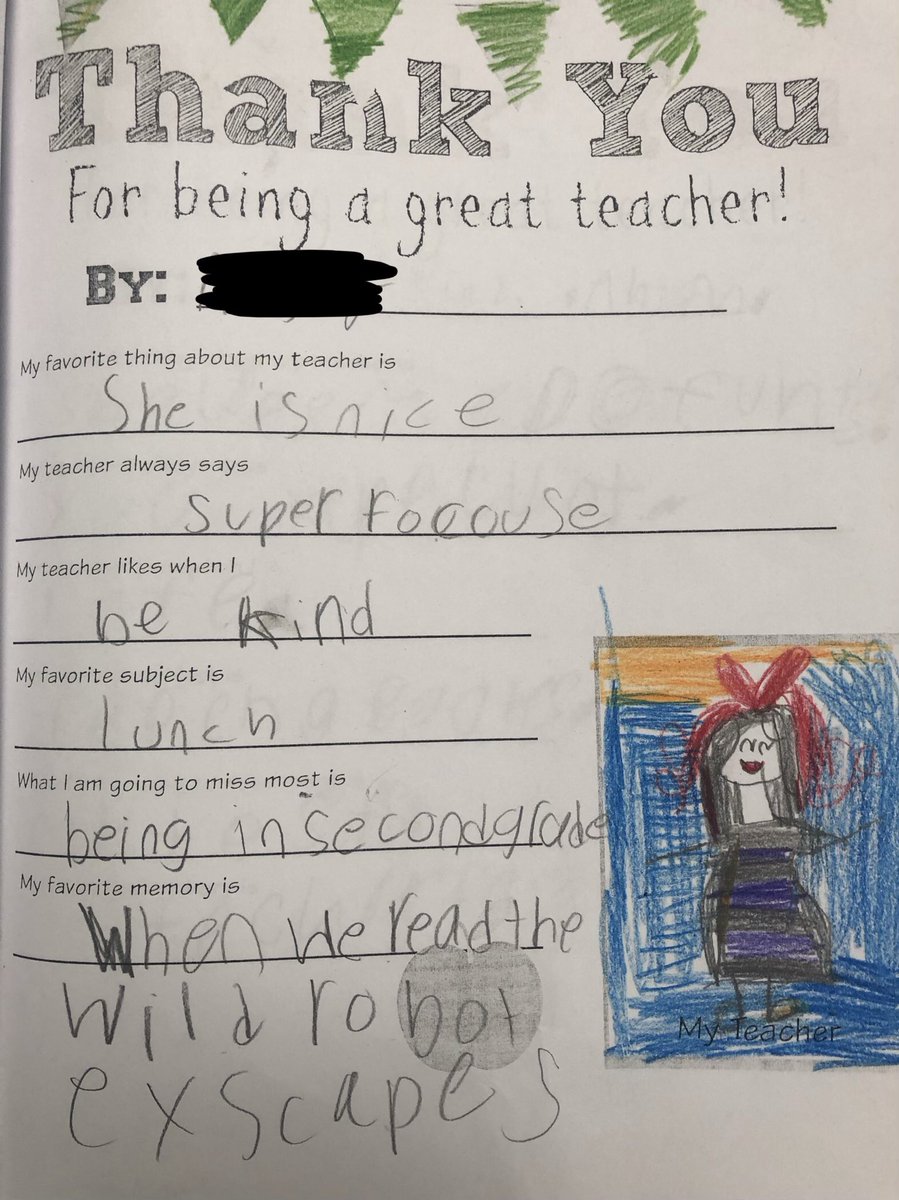 Thank You
For being a great teacher!
By:
My favorite thing about my teacher is
She is nice
My teacher always says
super focouse
My teacher likes when I
be kind
My favorite subject is
lunch
What I am going to miss most is
being in second grade
My favorite memory is
When We read the
wild robot
exscapes
My Teacher